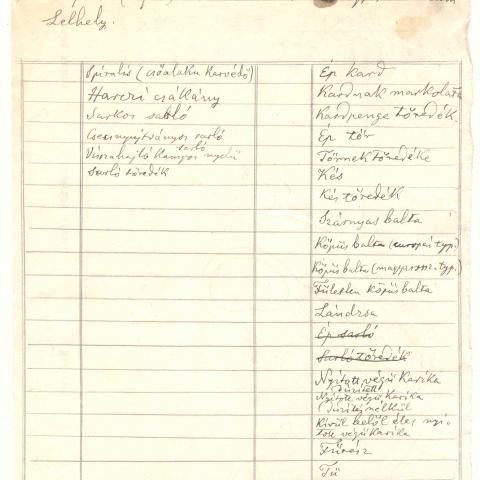 Lelhely.
Spirális (csőalaku karvédő)
Harczi csákány
Sarkos sarló
Csecsnyujtványos sarló
Visszahajló kampós nyelű sarló
Sarló töredék
Ép kard
Kardnak markolata
Kardpenge töredék
Ép tőr
Tőrnek töredéke
Kés
Kés töredék
Szárnyas balta
Köpüs balta (európai typ.)
Köpüs balta (magyarorsz. typ.)
Fületlen köpüs balta
Lándzsa
Ép sarló
Sarló töredék
Nyitott végü karika
díszített
Nyitott végü karika
díszítés nélkül
Kivül belől éles nyi-
tott végü karika
Fürész
Tü